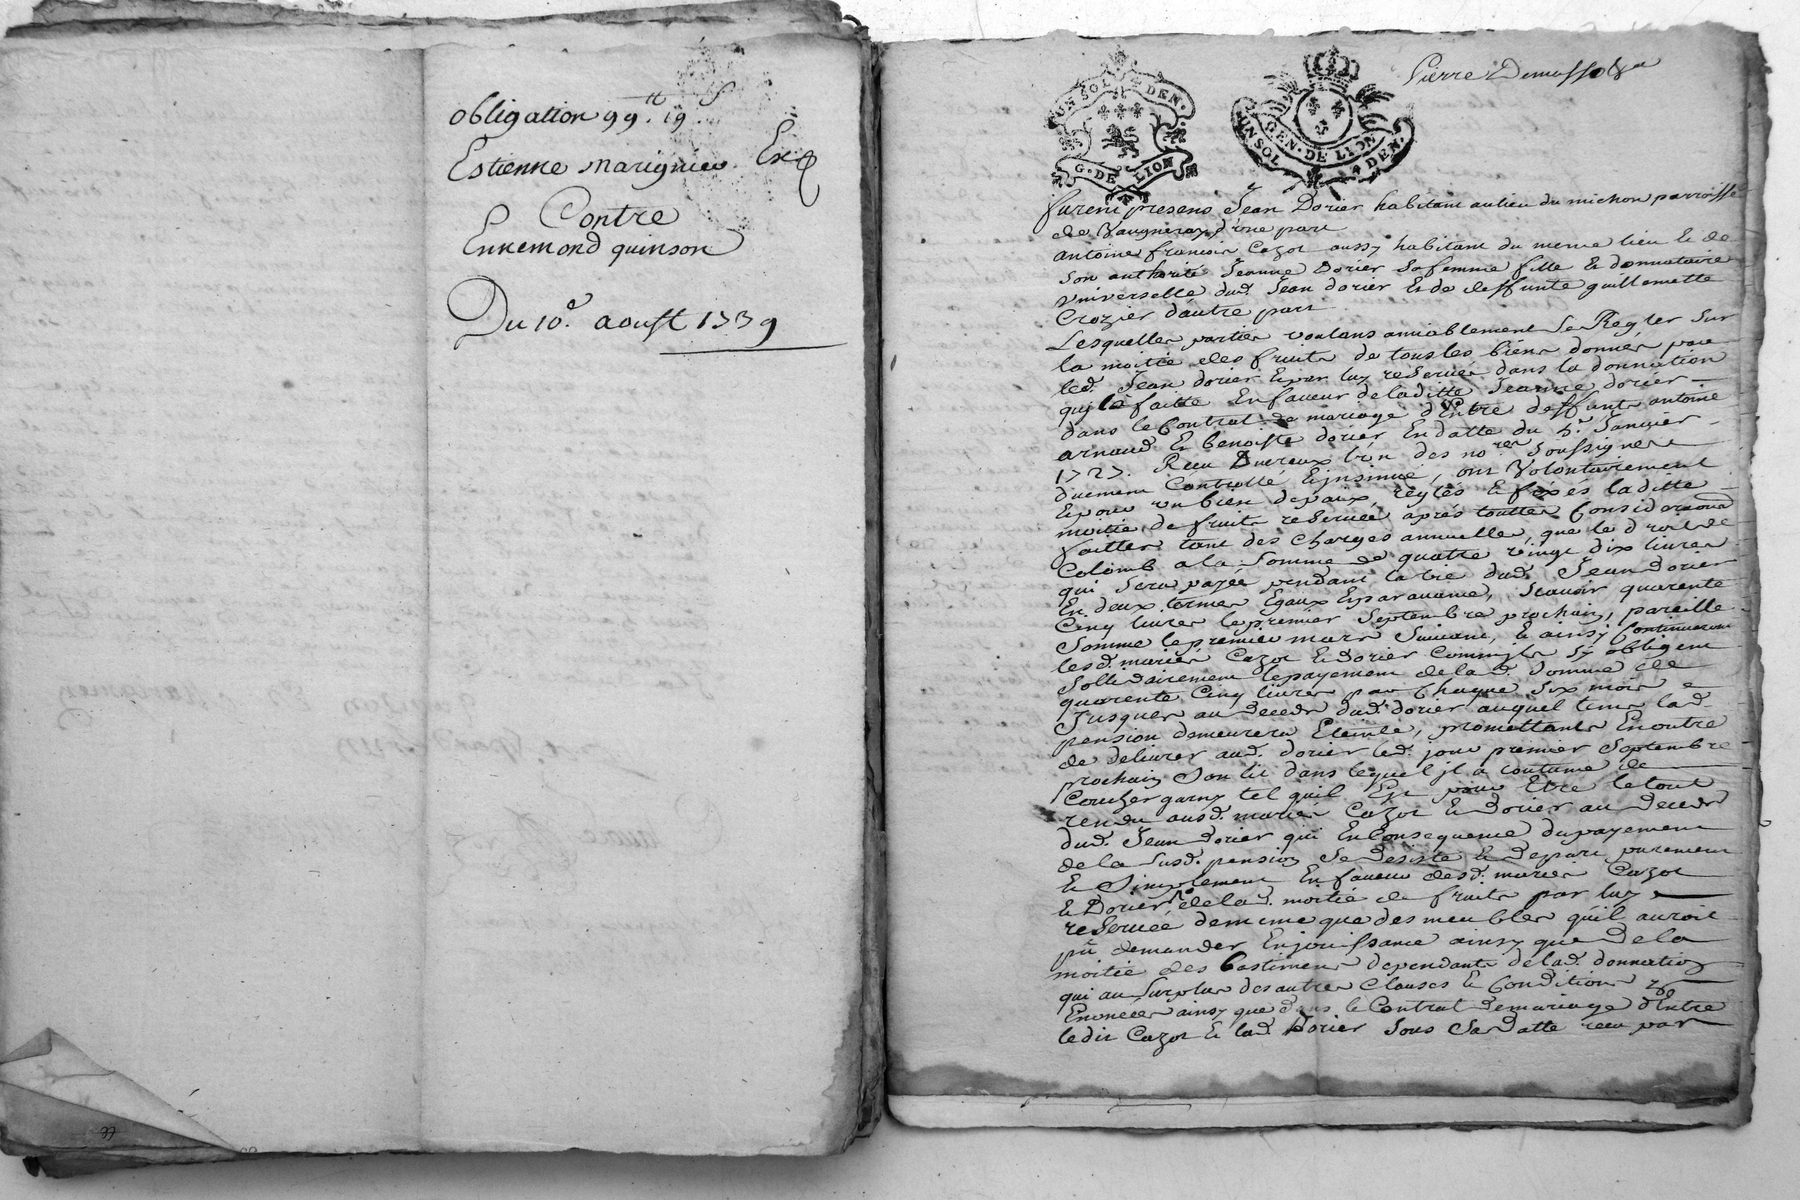 obligation 99.tt 19 s
Estienne marignieu Exp
Contre
Ennemond quinson
Du 10.e aoust 1739
UN SOL 4 DEN.
G. DE LION
GEN. DE LION
UN SOL 4 DEN.
Pierre
furent presens Jean Dorier habitant au lieu du michon parroisse
de Vaugneray d'une part
antoine francois Cazot aussy habitant du meme lieu et de
son authorité Jeanne Dorier sa femme fille et donnataire
Universelle dud. Jean dorier et de deffunte guillemette
Crozier d'autre part
Lesquelles parties voulans amiablement se Regler sur
la moitié des fruits de tous les biens donnés par
led. Jean dorier et par luy reservée dans la donnation
qu'il a faitte En faveur de laditte Jeanne dorier
dans le Contrat de mariage d'Entre deffunts antoine
arnaud et benoiste dorier En datte du Janvier
1727. Receu Duereux l'un des no.res soussignes
duement Controllé et insinué, ont Volontairement
et pour un bien de paix, reglés et fixés laditte
moitié de fruits reservée après touttes Considerations
faittes tant des charges annuelles, que le droit de
Colomb a la somme de quatre vingt dix livres
qui sera payée pendant la vie dud. Jean dorier
En deux termes Egaux et par avance, scavoir quarente
Cinq livres le premier Septembre prochain, pareille
somme le premier mars suivant, et ainsy Continueront
lesd. mariés Cazot et dorier comm'ils s'y obligent
sollidairement le payement de lad. somme de
quarente Cinq livres par Chaque six mois
Jusques au decedz dud. dorier auquel tems lad.
pension demeurera Eteinte, promettants En outre
de delivrer aud. dorier led. jour premier septembre
prochain son lit dans lequel jl a coutume de
Coucher garny tel quil Est pour Etre le tout
rendu ausd. mariés Cazot et Dorier au decedz
dud. Jean dorier qui En Consequence du payement
de la susd. pension se desiste et depart purement
et simplement En faveur desd. mariés Cazot
et Dorier de lad. moitié de fruits par luy
reservée de meme que des meubles qu'il auroit
pû demander En jouissance ainsy que de la
moitié des bastimens dependants de lad. donnation
qui au surplus des autres Clauses et Conditions y
Enoncées ainsy que dans le Contrat de mariage d'Entre
ledit Cazot et lad. Dorier sous sa datte receu par